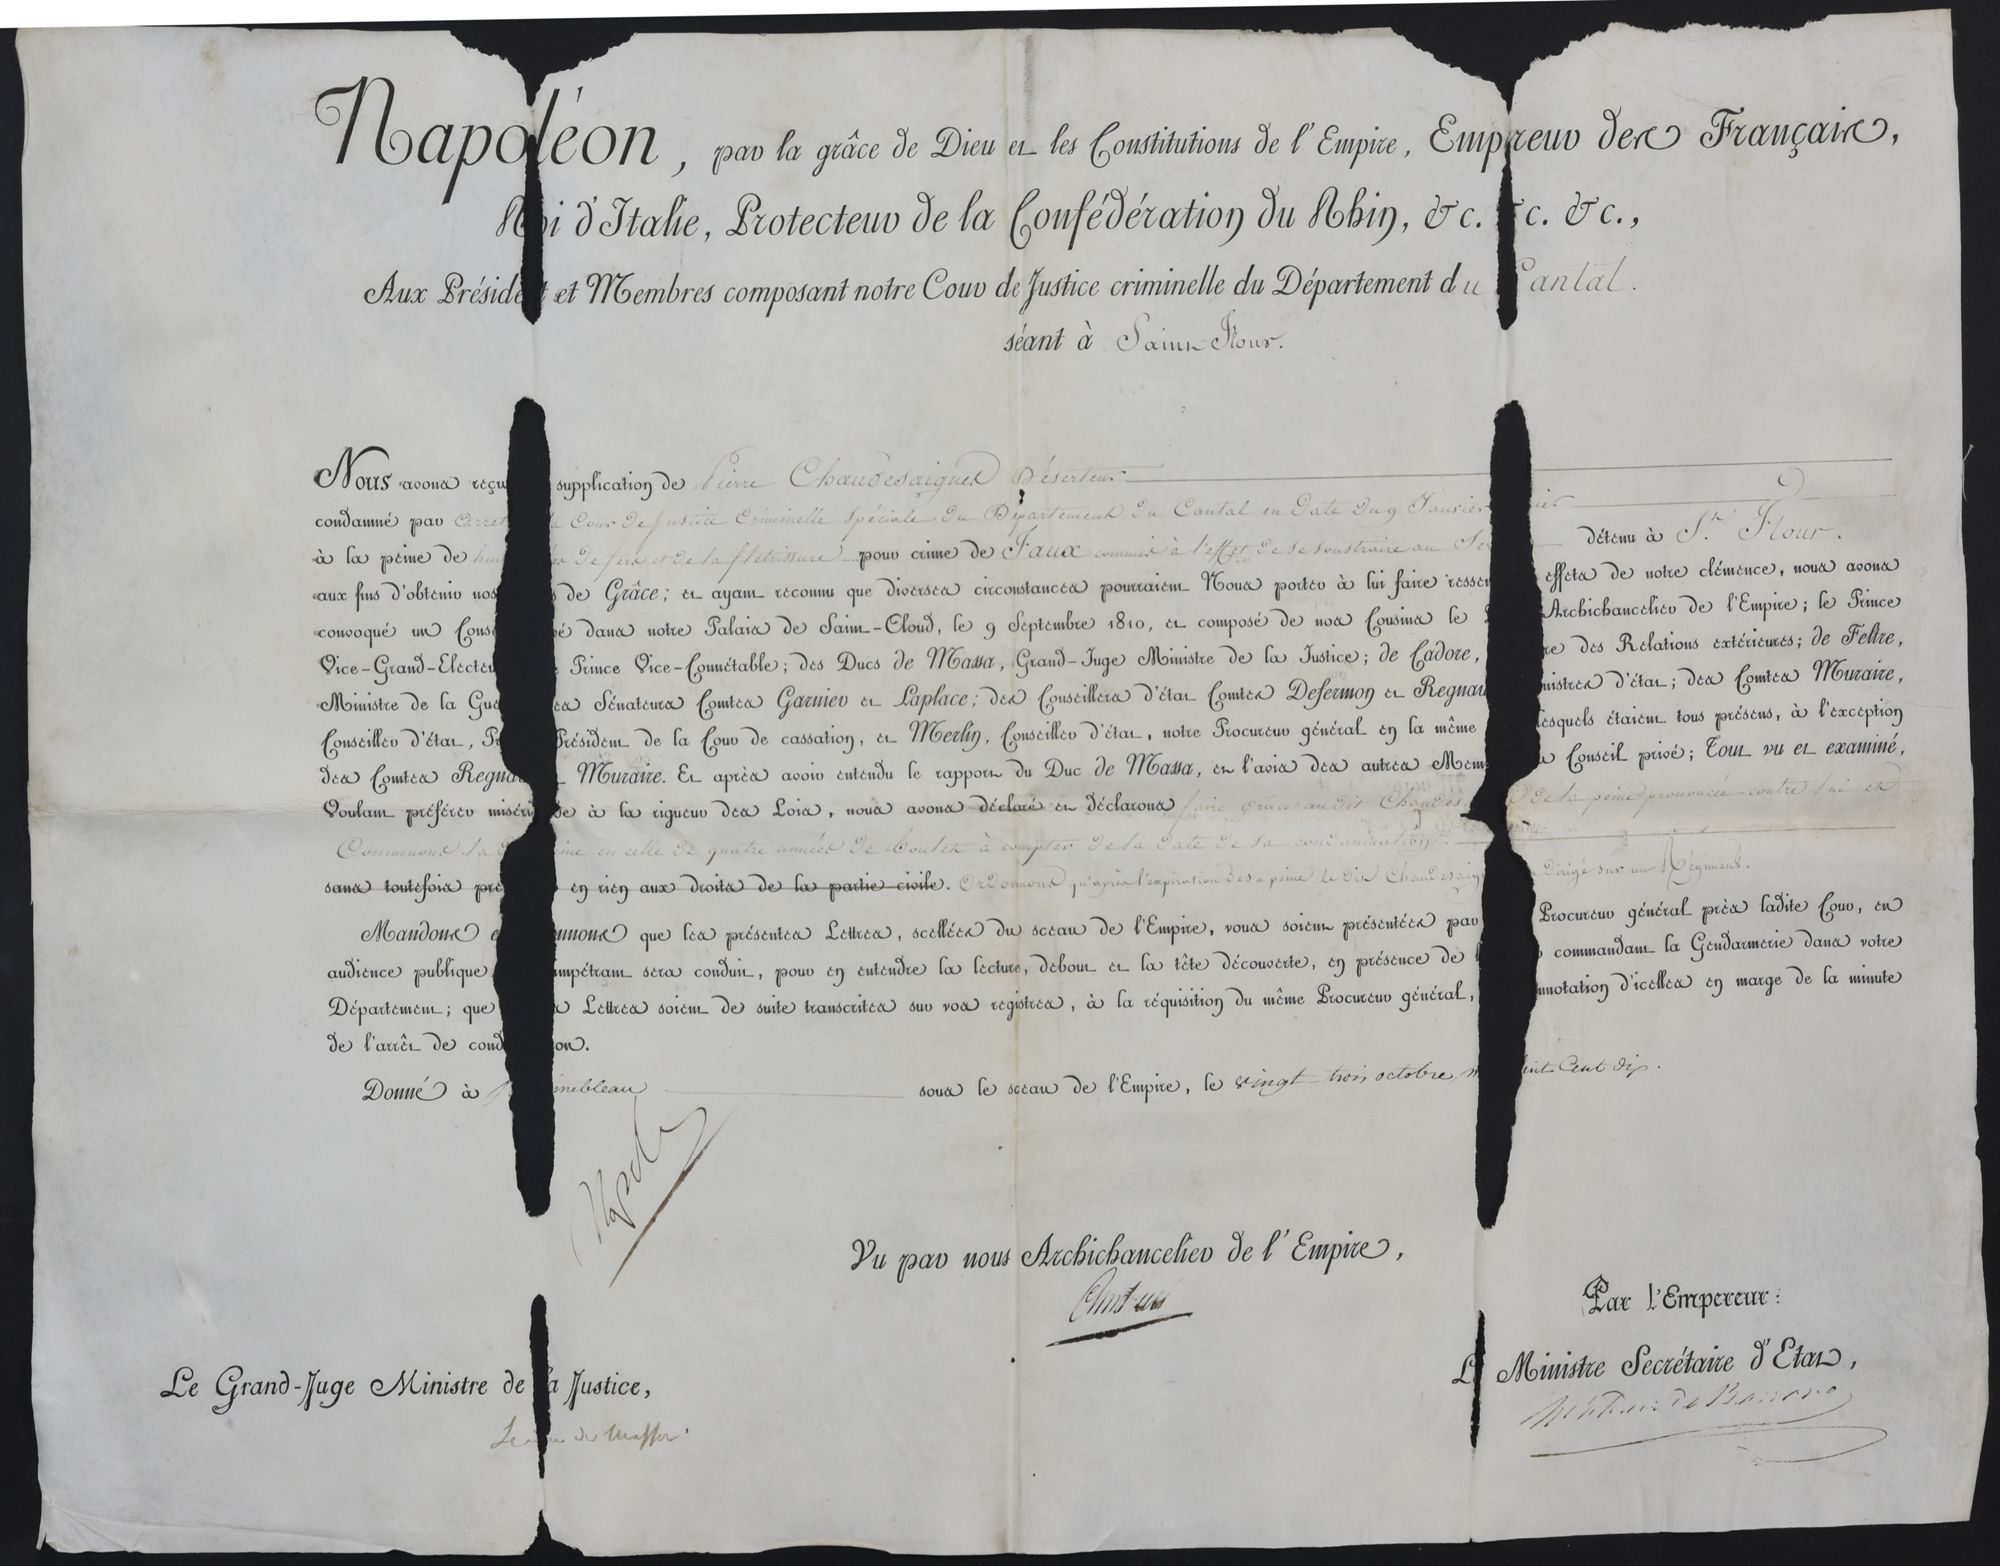 Napoléon, par la grâce de Dieu et les Constitutions de l'Empire, Empereur des Français,
Roi d'Italie, Protecteur de la Confédération du Rhin, &c. &c. &c.,
Aux Président et Membres composant notre Cour de Justice criminelle du Département du Cantal.
séant à Saint-Flour.
Nous avons reçu supplication de Pierre Chaudesaignes Déserteur
condamné par arrêt la Cour de Justice Criminelle Spéciale du Département du Cantal en date du 9 Janvier
à la peine de de fers et de la flétrissure pour crime de Faux commis à l'effet de se soustraire au détenu à St. Flour.
aux fins d'obtenir nos de Grâce; et ayant reconnu que diverses circonstances pourraient Nous porter à lui faire ressen effets de notre clémence, nous avons
convoqué un Cons vé dans notre Palais de Saint-Cloud, le 9 Septembre 1810, et composé de nos Cousins le Archichancelier de l'Empire; le Prince
Vice-Grand-Electeu Prince Vice-Connétable; des Ducs de Massa, Grand-Juge Ministre de la Justice; de Cadore, re des Relations extérieures; de Feltre,
Ministre de la Gue es Sénateurs Comtes Garnier et Laplace; des Conseillers d'état Comtes Defermon et Regnau nistres d'état; des Comtes Muraire,
Conseiller d'état, Pr Président de la Cour de cassation, et Merlin, Conseiller d'état, notre Procureur général en la même lesquels étaient tous présens, à l'exception
des Comtes Regnau Muraire. Et après avoir entendu le rapport du Duc de Massa, et l'avis des autres Mem Conseil privé; Tout vu et examiné,
Voulant préférer miséri de à la rigueur des Lois, nous avons déclaré et déclarons faire grace au dit Chaudes de la peine prononcée contre lui et
Commuons la ine en celle de quatre années de boulet à compter de la date de sa condamnation.
sans toutefois pré en rien aux droits de la partie civile. Ordonnons qu'après l'expiration de sa peine le dit Chaudesaig dirigé sur un Régiment.
Mandons e nnons que les présentes Lettres, scellées du sceau de l'Empire, vous soient présentées par Procureur général près ladite Cour, en
audience publique impétrant sera conduit, pour en entendre la lecture, debout et la tête découverte, en présence de l commandant la Gendarmerie dans votre
Département; que s Lettres soient de suite transcrites sur vos registres, à la réquisition du même Procureur général, nnotation d'icelles en marge de la minute
de l'arrêt de cond on.
Donné à inebleau sous le sceau de l'Empire, le vingt-trois octobre m uit Cent dix.
Vu par nous Archichancelier de l'Empire,
Par l'Empereur:
Le Ministre Secrétaire d'Etat,
Le Grand-Juge Ministre de la Justice,
de Massa
de Bassano